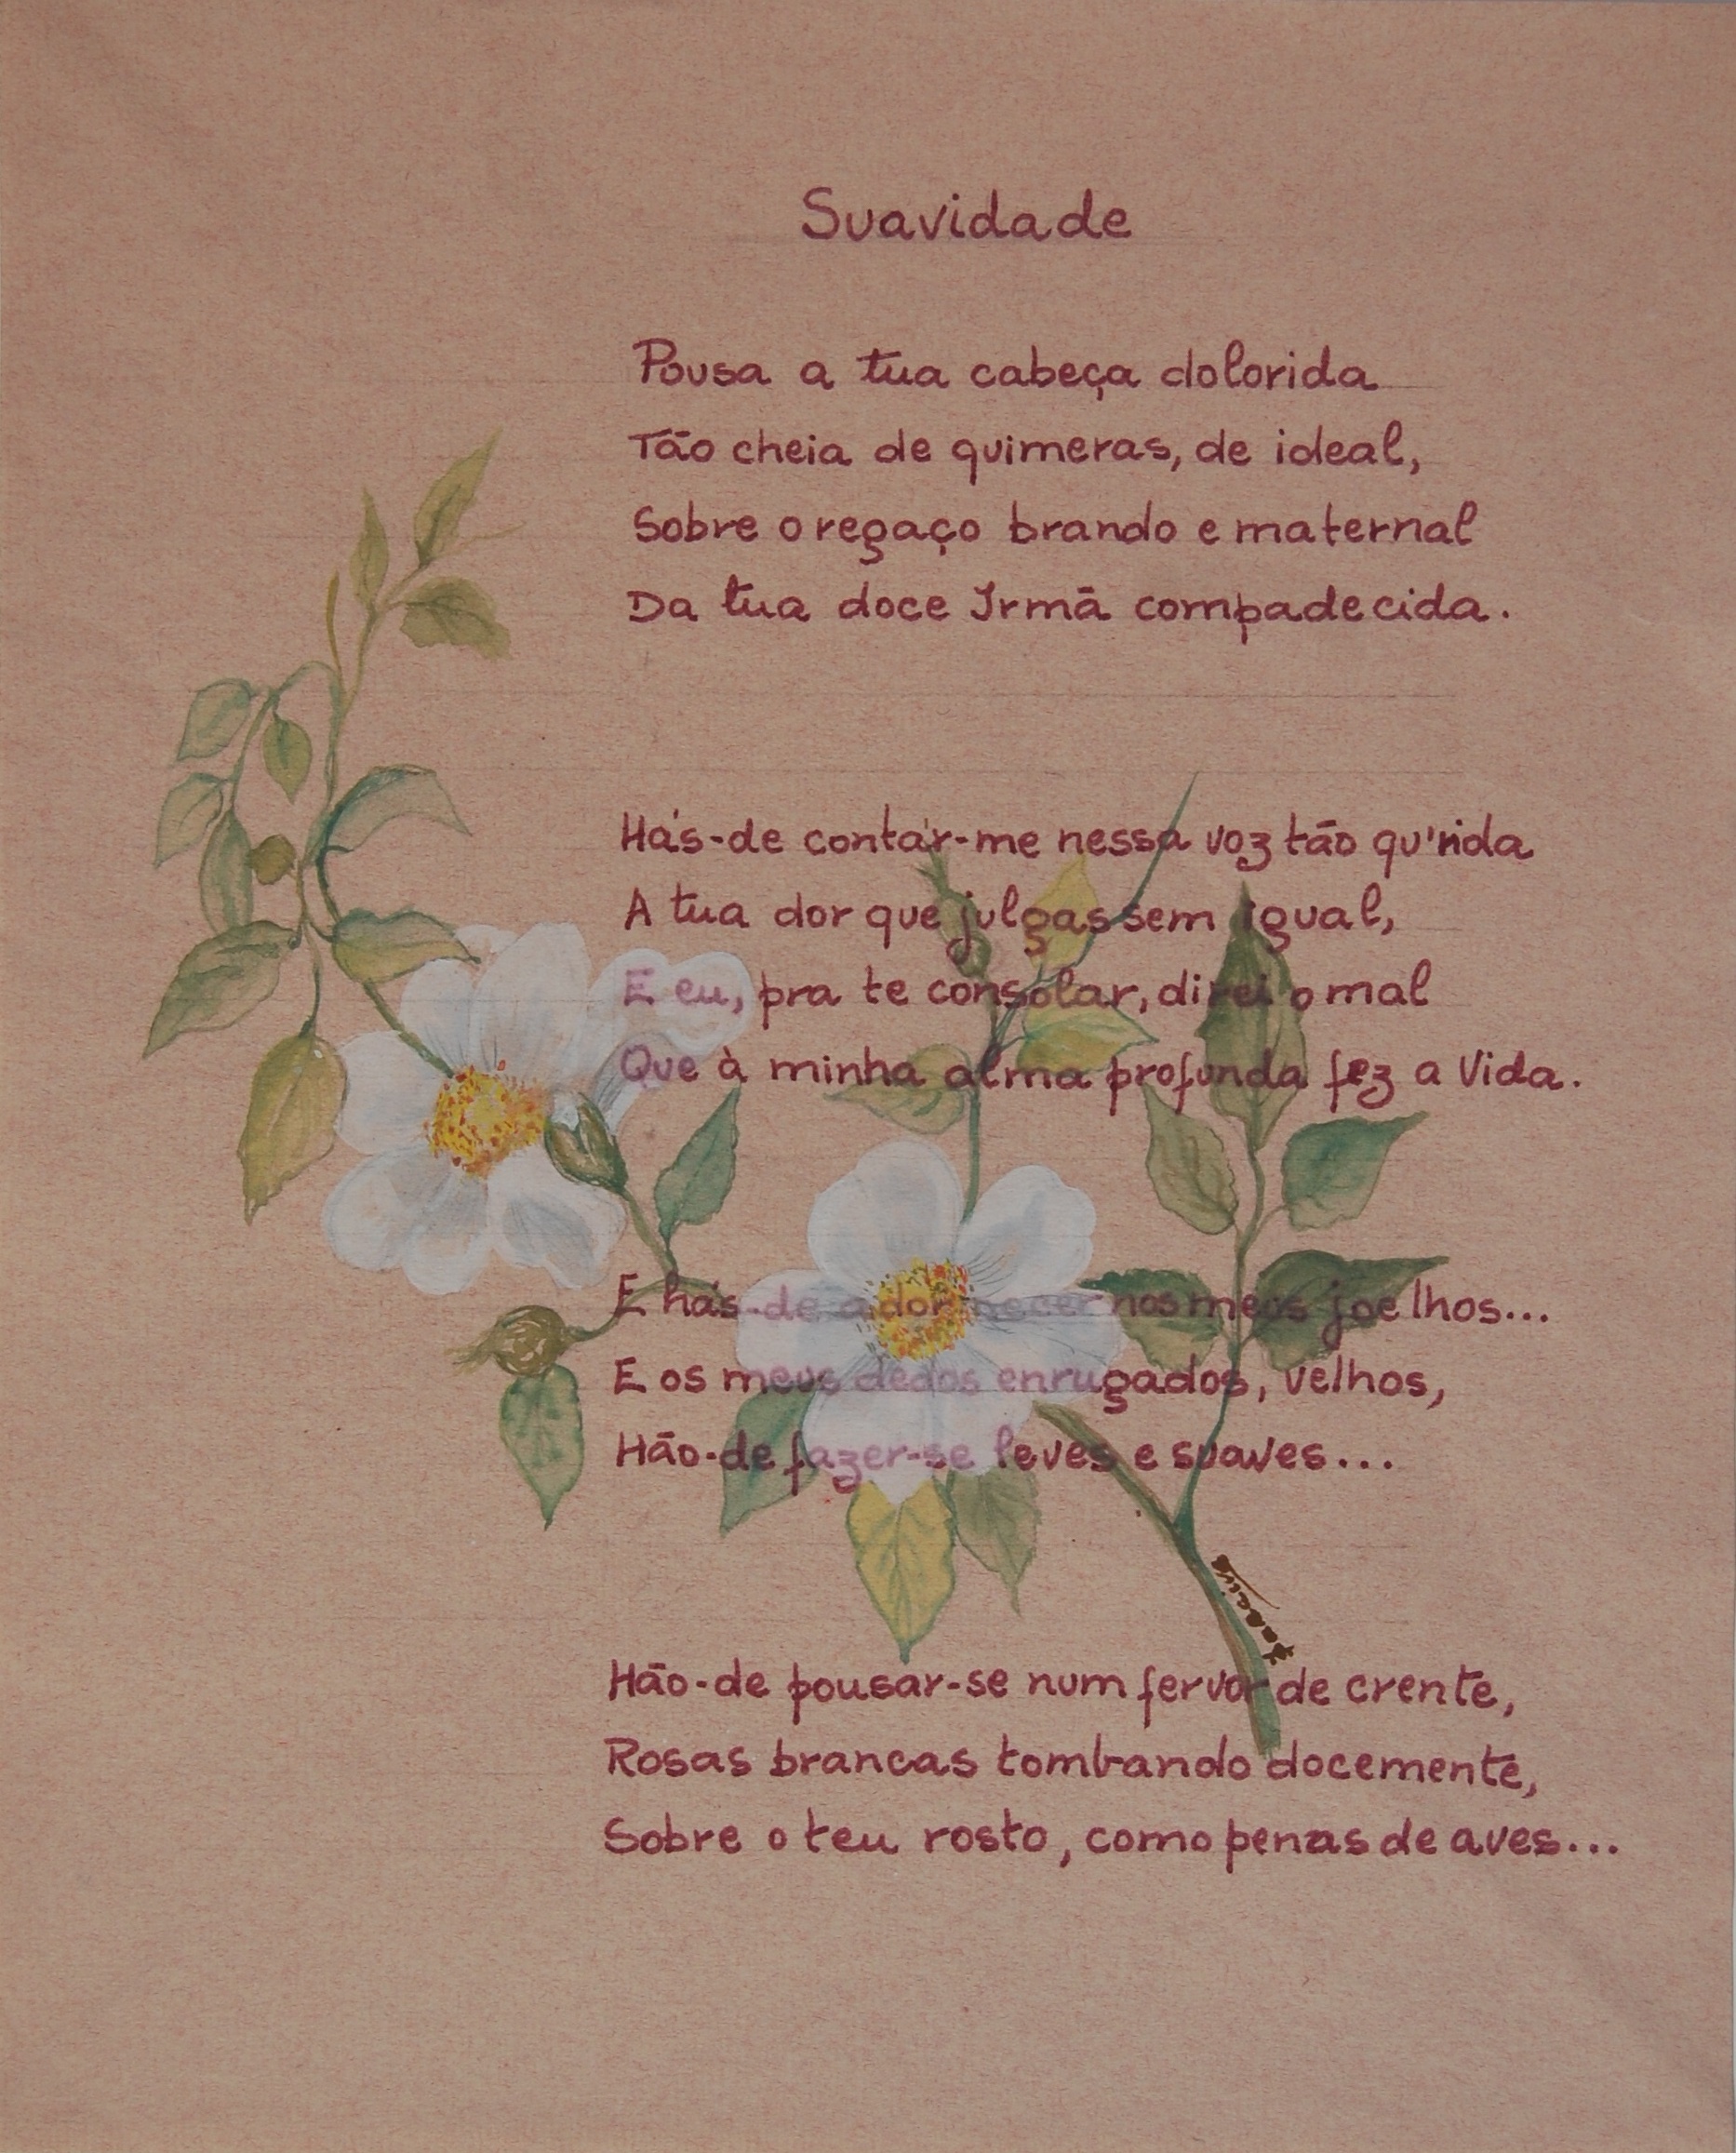 Suavidade
Pousa a tua cabeça dolorida
Tão cheia de quimeras, de ideal,
Sobre o regaço brando e maternal
Da tua doce Irmã compadecida.
Hás-de contar-me nessa voz tão qu'rida
A tua dor que julgas sem igual,
E eu, pra te consolar, direi o mal
Que à minha alma profunda fez a Vida.
E hás-de adormecer nos meus joelhos...
E os meus dedos enrugados, velhos,
Hão-de fazer-se leves e suaves...
Hão-de pousar-se num fervor de crente,
Rosas brancas tombando docemente,
Sobre o teu rosto, como penas de aves...